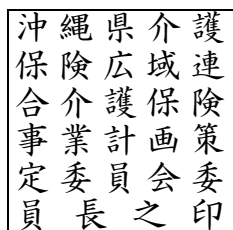 沖縄県介護
保険広域連
合介護保険
事業計画策
定委員会委
員長之印